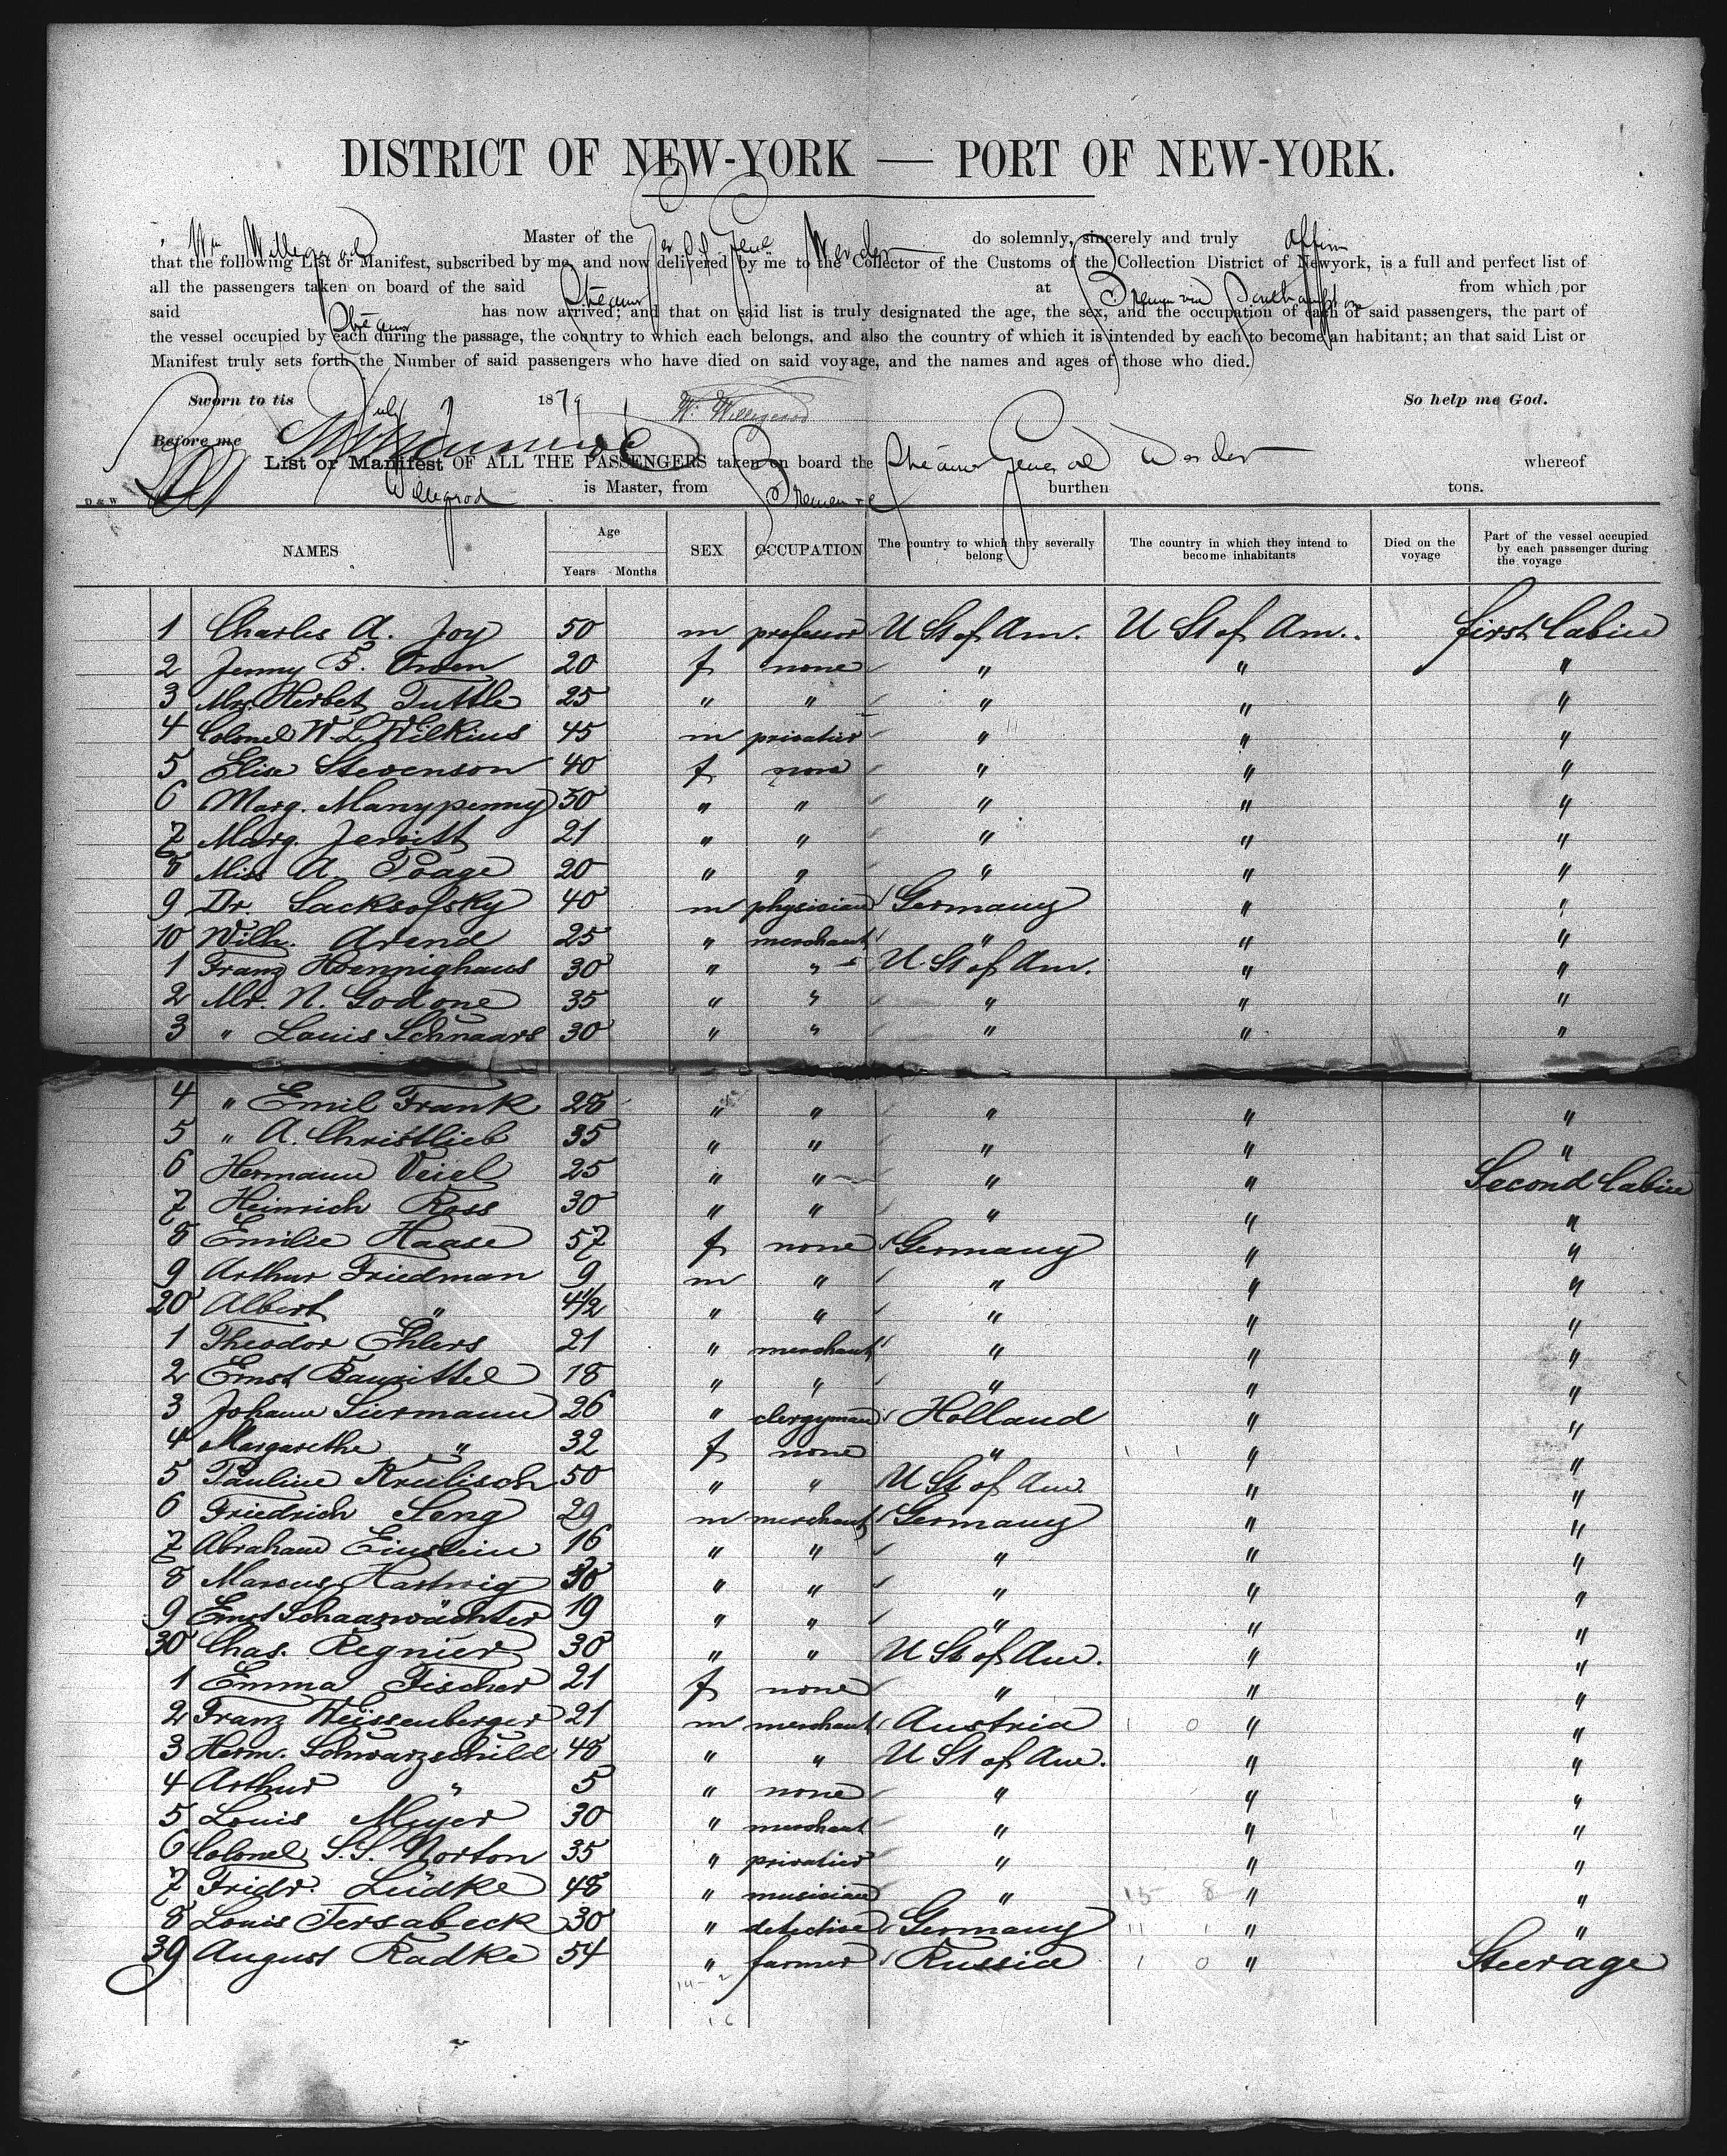 DISTRICT OF NEW-YORK — PORT OF NEW-YORK.
Wm Willegerod Master of the Ger. SS. Genl Werder do solemnly, sincerely and truly affirm
that the following List or Manifest, subscribed by me, and now delivered by me to the Collector of the Customs of the Collection District of Newyork, is a full and perfect list of
all the passengers taken on board of the said Steamer at Bremen via Southampton from which por
said Steamer has now arrived; and that on said list is truly designated the age, the sex, and the occupation of each of said passengers, the part of
the vessel occupied by each during the passage, the country to which each belongs, and also the country of which it is intended by each to become an habitant; an that said List or
Manifest truly sets forth the Number of said passengers who have died on said voyage, and the names and ages of those who died.
Sworn to tis July 7 1879 W. Willegerod So help me God.
Before me
List or Manifest OF ALL THE PASSENGERS taken on board the Steamer General Werder whereof
Willegerod is Master, from Bremen burthen tons.
D & W
NAMES Age Years Months SEX OCCUPATION The country to which they severally belong The country in which they intend to become inhabitants Died on the voyage Part of the vessel occupied by each passenger during the voyage
1 Charles A. Joy 50 m professor U St of Am. U St of Am. first Cabin
2 Jenny B. Owen 20 f none " " "
3 Mrs Herbet Tuttle 25 " " " " "
4 Colonel W. L. Wilkius 45 m privatier " " "
5 Elise Stevenson 40 f none " " "
6 Marg. Manypenny 50 " " " " "
7 Marg. Jewitt 21 " " " " "
8 Miss A. Poage 20 " " " " "
9 Dr. Sacksofsky 40 m physician Germany " "
10 Wilh. Arend 25 " merchant " " "
1 Franz Hoenninghaus 30 " " U. St of Am. " "
2 Mr. N. Godone 35 " " " " "
3 " Louis Schnaars 30 " " " " "
4 " Emil Frank 28 " " " " "
5 " A. Christlieb 35 " " " " "
6 Hermann Veiel 25 " " " " Second Cabin
7 Heinrich Ross 30 " " " " "
8 Emilie Haase 57 f none Germany " "
9 Arthur Friedman 9 m " " " "
20 Albert " 4 1/2 " " " " "
1 Theodor Ehlers 21 " merchant " " "
2 Ernst Bauzittel 18 " " " " "
3 Johann Siermann 26 " clergyman Holland " "
4 Margarethe " 32 f none " " "
5 Pauline Kreilisch 50 " " U St of Am. " "
6 Friedrich Seng 29 m merchant Germany " "
7 Abraham Einstein 16 " " " " "
8 Marcus Hartwig 30 " " " " "
9 Ernst Schaarwächter 19 " " " " "
30 Chas. Regnier 30 " " U St of Am. " "
1 Emma Fischer 21 f none " " "
2 Franz Weissenberger 21 m merchant Austria " "
3 Herm. Schwarzschild 48 " " U St of Am. " "
4 Arthur " 5 " none " " "
5 Louis Meyer 30 " merchant " " "
6 Colonel S. S. Norton 35 " privatier " " "
7 Fridr. Lüdke 48 " musician " " "
8 Louis Fersabeck 30 " detective Germany " "
39 August Radke 54 " farmer Russia " Steerage